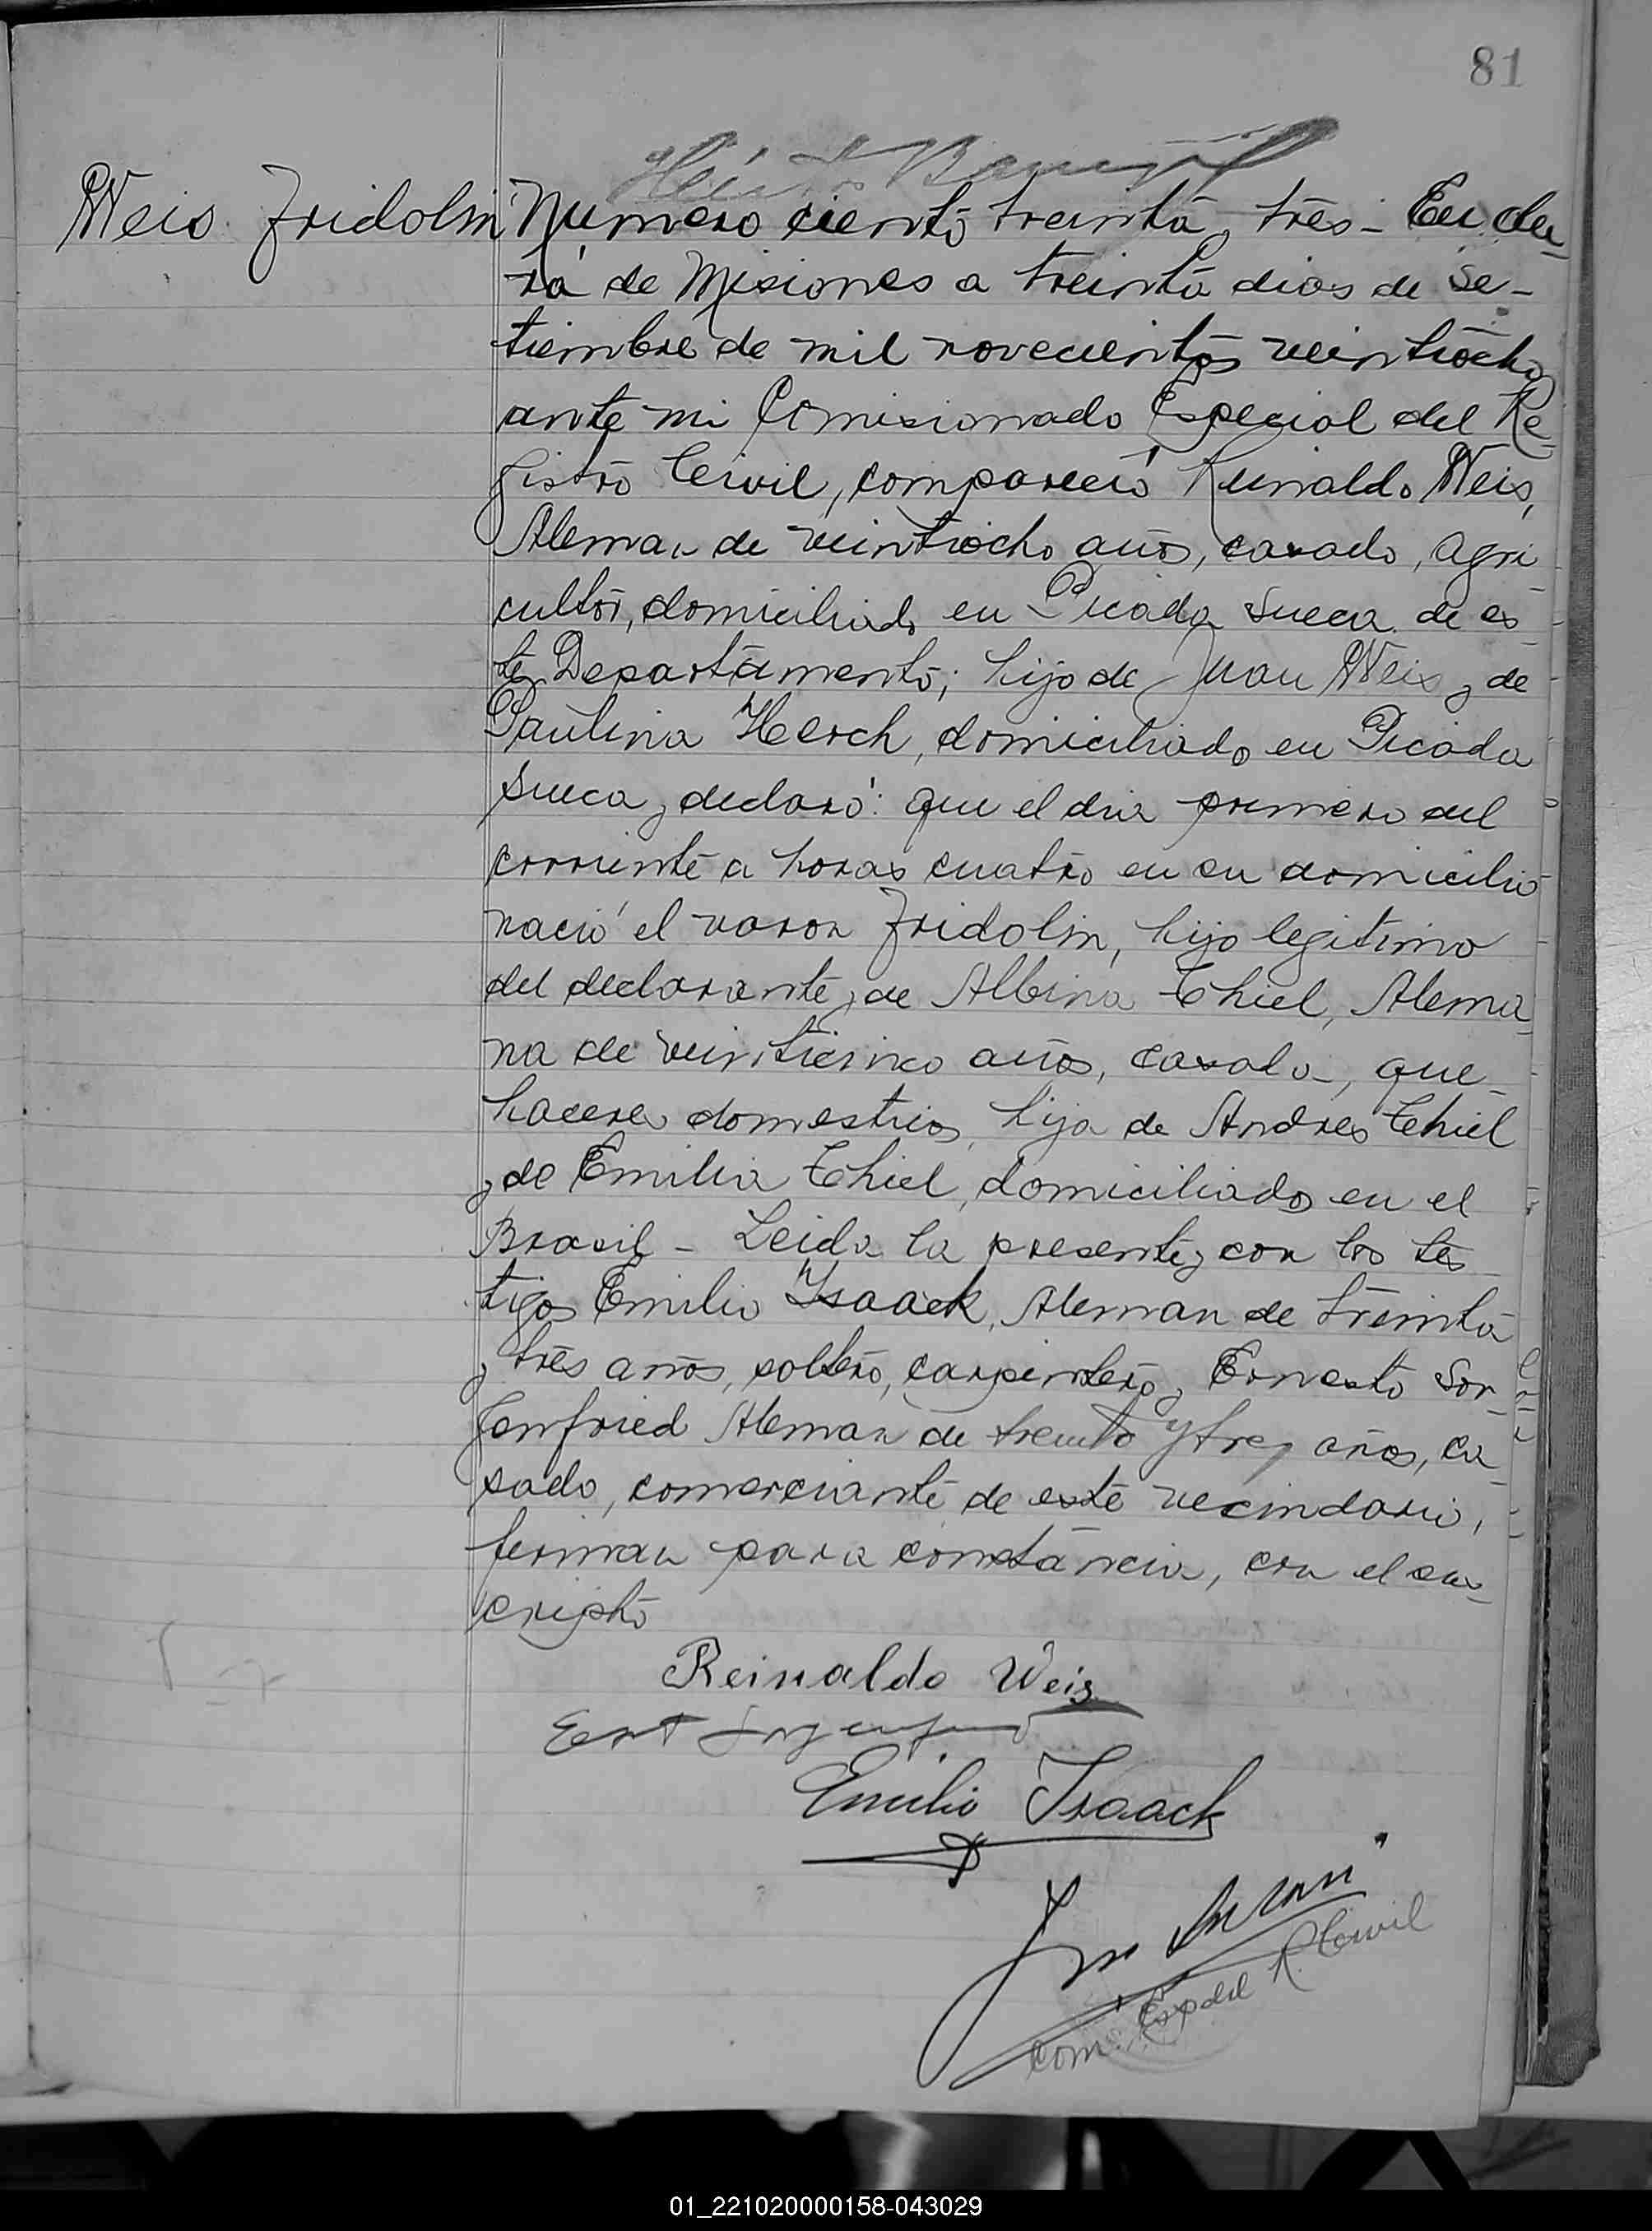 81
Weis Fridolin
Numero ciento treinta y tres - En Cer
ro de Misiones a treinta dias de se-
tiembre de mil novecientos veintiocho
ante mi Comisionado Especial del Re-
gistro Civil, compareció Reinaldo Weis,
Aleman de veintiocho años, casado, agri
cultor, domiciliado en Picada Sueca de es
te Departamento; hijo de Juan Weis y de
Paulina Herch, domiciliados en Picada
Sueca y declaró: que el dia primero del
corriente a horas cuatro en su domicilio
nació el varon Fridolin, hijo legitimo
del declarante y de Albina Thiel, Alema
na de veinticinco años, casada, que-
haceres domestricos, hija de Andres Thiel
y de Emilia Thiel, domiciliados en el
Brasil - Leida la presente y con los tes
tigos Emilio Isaack, Aleman de treinta
y tres años, soltero, carpintero y Ernesto Sor-
genfried Aleman de treinta y tres años, ca-
sado, comerciante de este vecindario,
firman para constancia, con el sus-
cripto
Reinaldo Weis
Ernst Sorgenfried
Emilio Isaack
Com. Esp del R. Civil
01_221020000158-043029